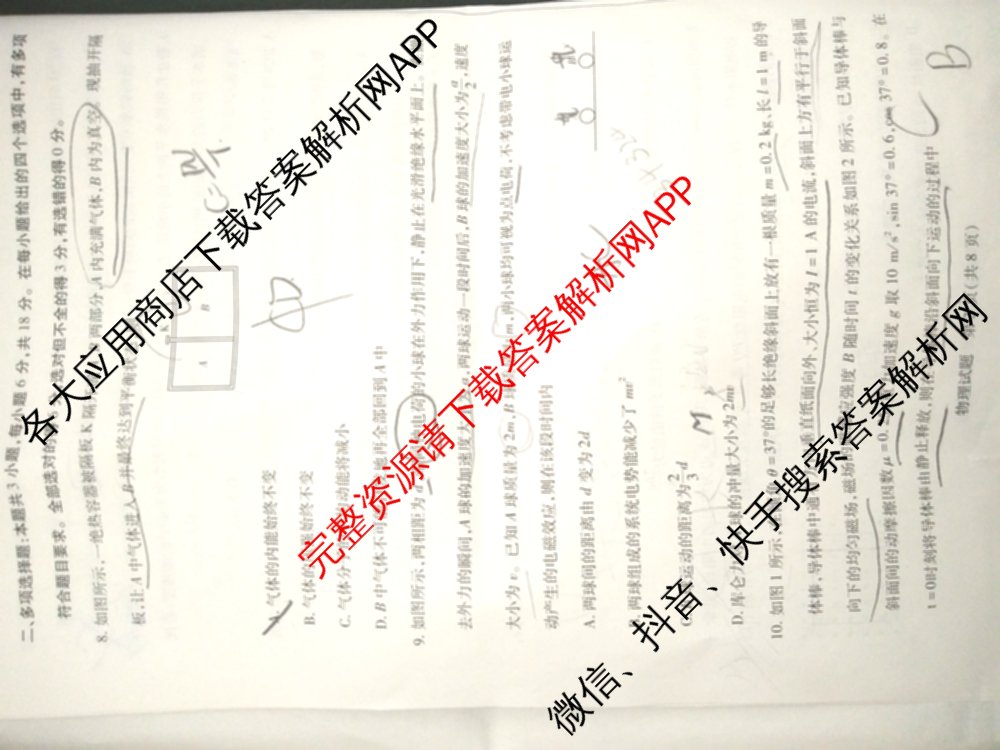 二、多项选择题:本题共3小题,每小题6分,共18分。在每小题给出的四个选项中,有多项
符合题目要求。全部选对的 选对但不全的得3分,有选错的得0分。
8. 如图所示,一绝热容器被隔板K隔 两部分,A内充满气体,B内为真空。现抽开隔
板,让A中气体进入B并最终达到平衡状
A
B
A. 气体的内能始终不变
B. 气体的 始终不变
C. 气体分 动能将减小
D. B中气体不可 地再全部回到A中
9. 如图所示,两相距为 电荷的小球在外力作用下,静止在光滑绝缘水平面上。
去外力的瞬间,A球的加速度大 两球运动一段时间后,B球的加速度大小为a/2,速度
大小为v。已知A球质量为2m,B球 m,两小球均可视为点电荷,不考虑带电小球运
动产生的电磁效应,则在该段时间内
A. 两球间的距离由d变为2d
两球组成的系统电势能减少了mv²
C. 运动的距离为2/3 d
D. 库仑力 的冲量大小为2mv
M
10. 如图1所示, θ=37°的足够长绝缘斜面上放有一根质量m=0.2 kg、长l=1 m的导
体棒,导体棒中通 垂直纸面向外、大小恒为I=1 A的电流,斜面上方有平行于斜面
向下的匀强磁场,磁场 应强度B随时间t的变化关系如图2所示。已知导体棒与
斜面间的动摩擦因数μ=0. 加速度g取10 m/s²,sin 37°=0.6,cos 37°=0.8。在
t=0时刻将导体棒由静止释放,则 沿斜面向下运动的过程中
C
B
物理试题 (共8页)
各大应用商店下载答案解析网APP
完整资源请下载答案解析网APP
微信、抖音、快手搜索答案解析网